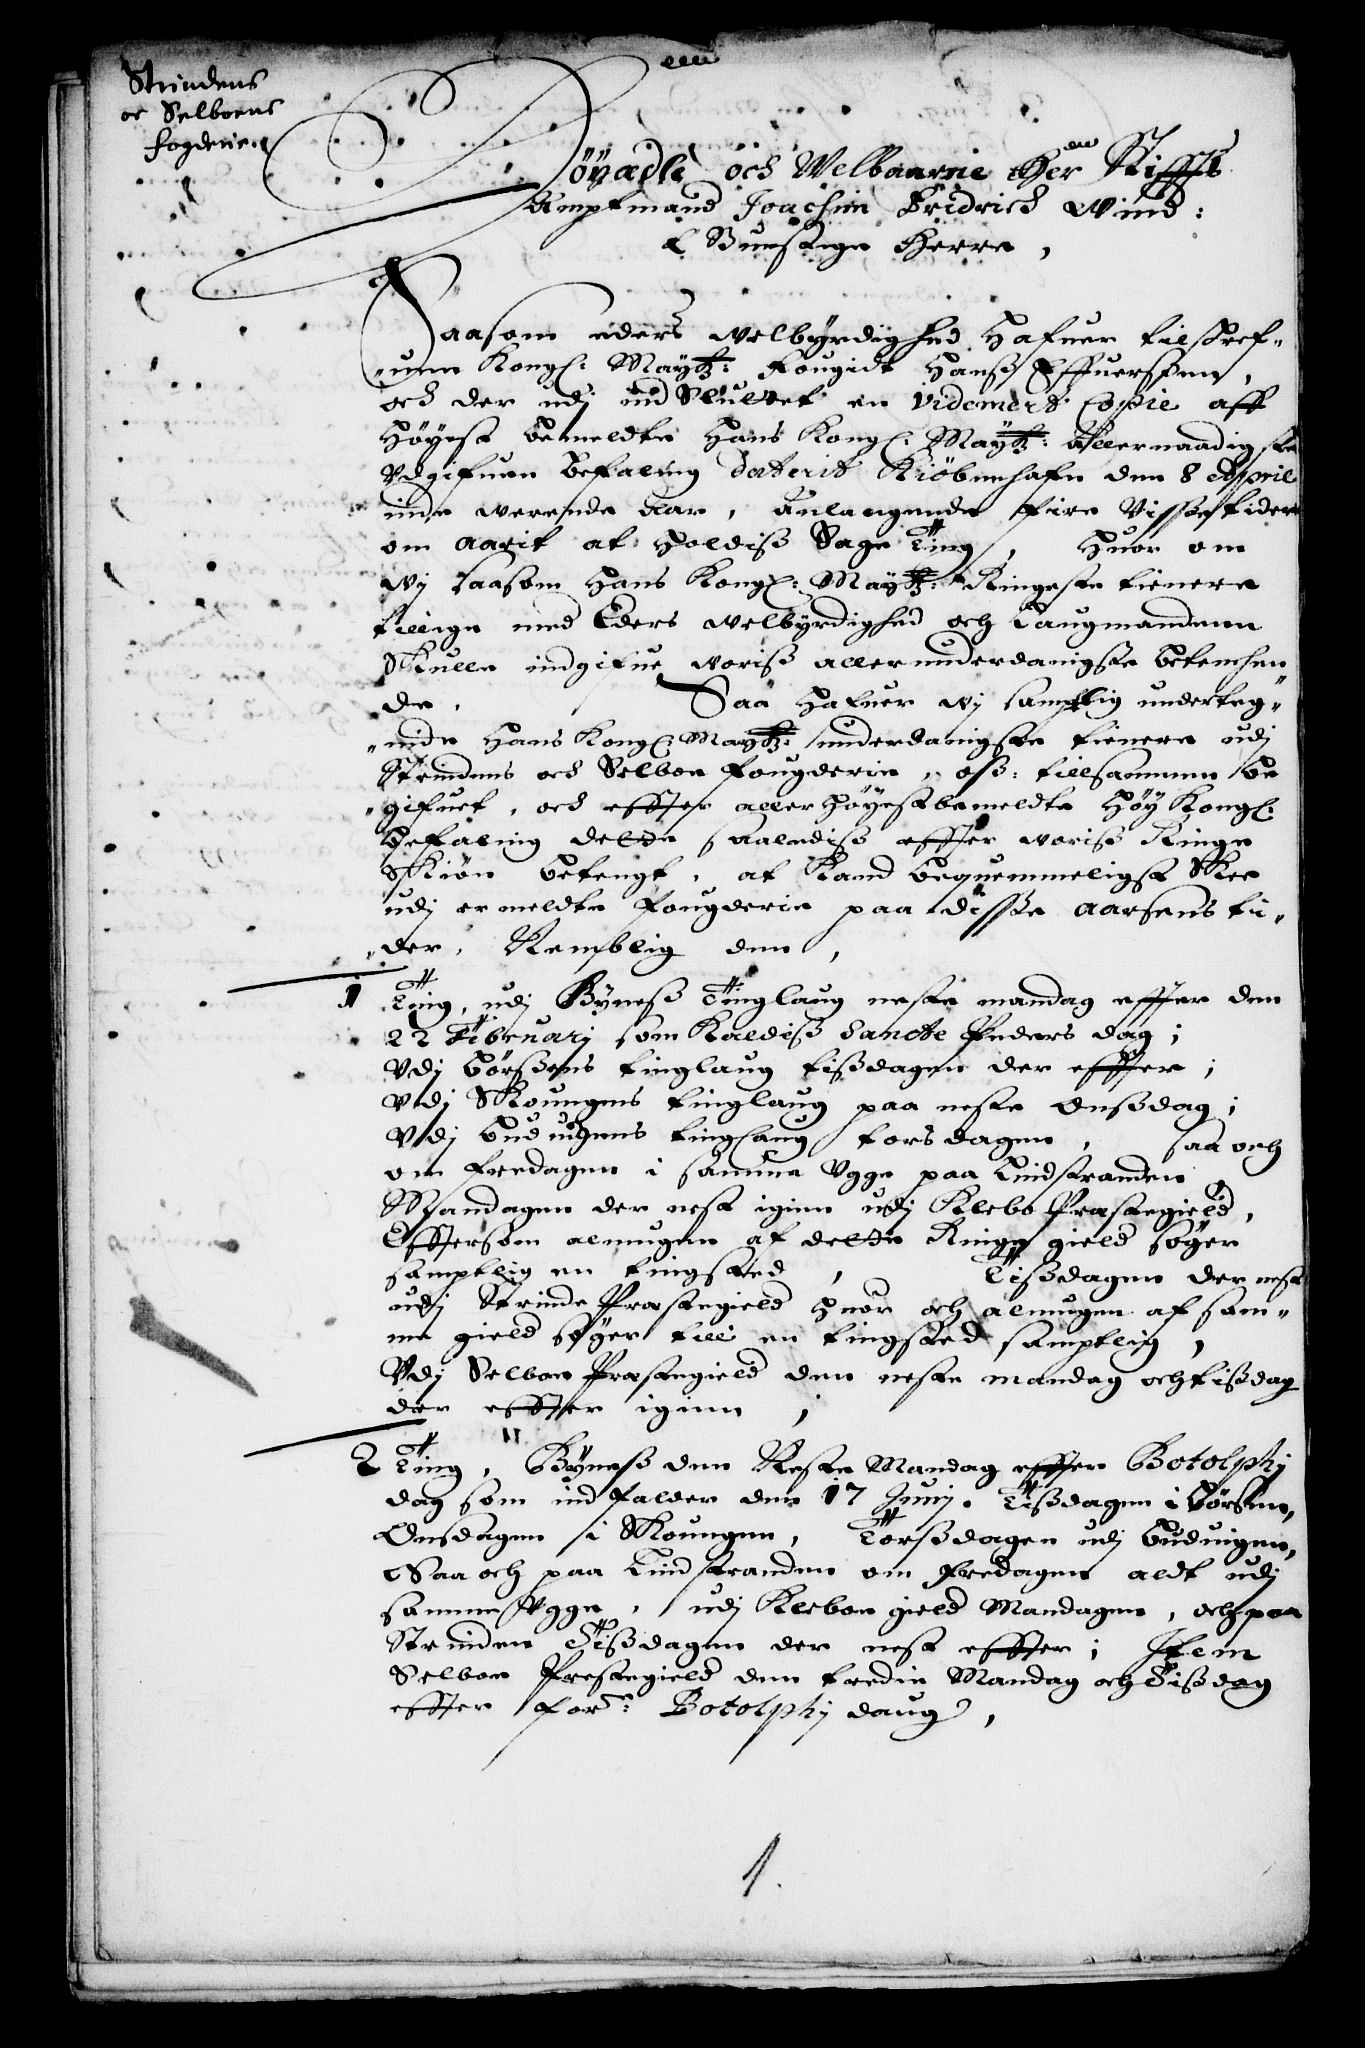 Strindens
oc Selboens
fogderie
Höyädle och Welbaarne Her Stiffts
Amptmand Joachim Fridrich Wind:
Gunstige Herre,
Saasom eders Welbyrdighed Hafuer tilskref-
"uen Kongl: Maytz: Fougidt Hans Effuersen,
och der udj ind Sluttet en Videmerit Copie aff
Høyest bemeldte Hans Kongl: Maytz: Allernaadigste
Udgifuen befaling daterit Kiöbenhafn den 8 Aprilis
inde werende Aar, Anlangende fire Visse tider
om aarit at holdis Sage Ting, huor om
wj saasom Hans Kongl: Maytz: Ringeste tienere
tillige med Eders welbyrdighed och Laugmanden
Skulle indgifue woris allerunderdanigste betenchen
de. Saa hafuer wj samptlig underteg"
"nide Hans Kongl: Maytz: underdanigste tienere udj
Strindens och Selboe fougderie, oss: tillsammen be
"gifuet, och effter allerhøyestbemeldte Høy Kongl:
befaling dette saaledis effter woris Ringe
Skiøn betengt, at kand bequemmeligst Skee
udj ermeldte fougderie paa disse aarsens ti"
"der, Nemblig den,
1 Ting, udj Byness Tinglaug neste mandag effter den
22 Februarj som kaldis Sancte Peders dag;
Vdj Børssens tinglaug tissdagen der effter;
Vdj Skoungens tinglaug paa neste Onssdag;
Vdj Buduigens tinglaug torsdagen, saa och
om fredagen i samme Ugge paa Lindstranden
Mandagen der nest igien udj Klebo Præstegield,
Efftersom almugen af dette Ringe gield søger
samptlig en tingsted, Tissdagen der nest
udj Strinde Præstegield huor och almugen af sam"
me gield søger till en tingsted samptlig,
Vdj Selboe Præstegield den neste mandag och tissdag
der effter igien;
2 Ting, Byness den Neste Mandag effter Botolphj
dag som ind falder den 17 Junij. Tissdagen i Børssen,
Onsdagen i Skoungen, Torssdagen udj Buduigen,
Saa och paa Lindstranden om fredagen aldt udj
samme Ugge, udj Kleboe gield Mandagen, och paa
Strinden Tissdagen der nest effter; Item
Selboe Prestegield den tredie Mandag och Tissdag
effter for: Botolphj daug,
1.